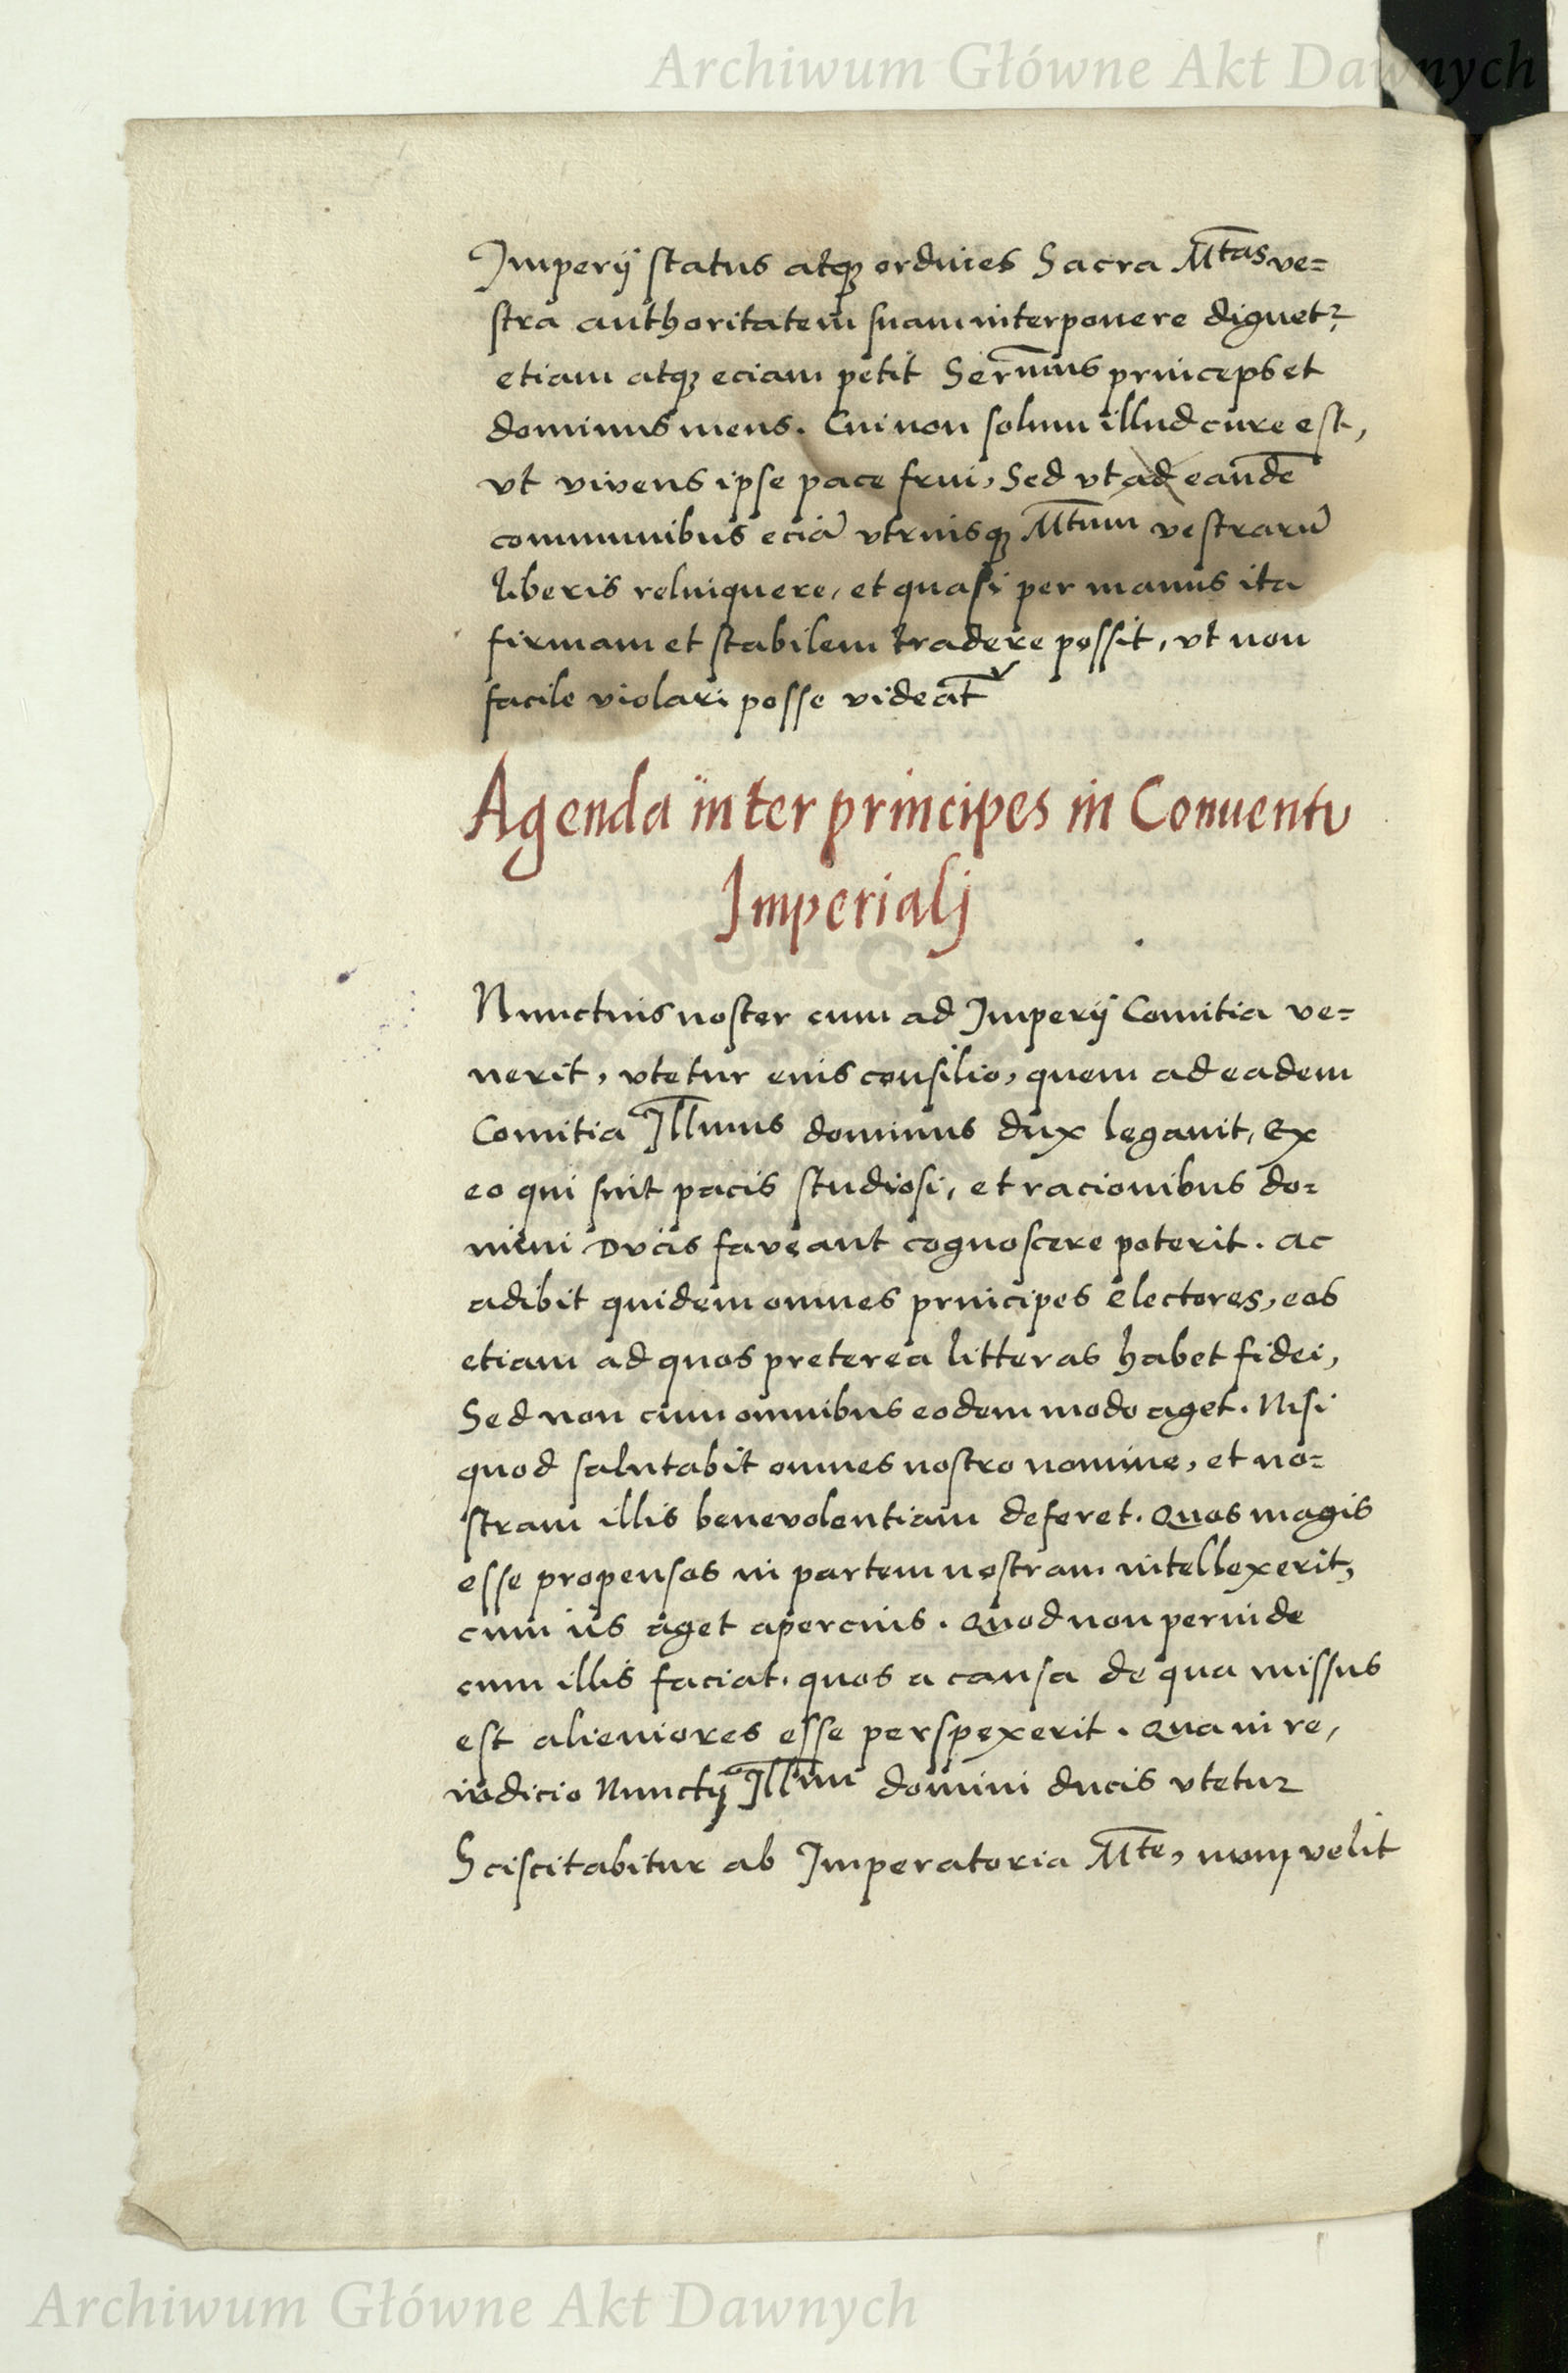 Archiwum Główne Akt Dawnych
Imperij status atq; ordines Sacra Mtas ve=
stra authoritatem suam interponere dignetr,
etiam atq; eciam petit Sermus princeps et
dominus meus. Cui non solum illud cure est,
vt vivens ipse pace frui, Sed vt ad eande
communibus eciā vtriusq; Mtum vestrarū
liberis relinquere, et quasi per manus ita
firmam et stabilem tradere possit, vt non
facile violari posse videat
Agenda inter principes in Conuentu
Imperialj
Nunctius noster cum ad Imperij Comitia ve=
nerit, vtetur eius consilio, quem ad eadem
Comitia Illmus dominus dux legauit, Ex
eo qui sint pacis studiosi, et racionibus do=
mini Ducis faveant cognoscere poterit. Ac
adibit quidem omnes principes electores, eos
etiam ad quos preterea litteras habet fidei,
Sed non cum omnibus eodem modo aget. Nisi
quod salutabit omnes nostro nomine, et no=
stram illis benevolentiam deferet. Quos magis
esse propensos in partem nostram intellexerit,
cum iis aget apercius. Quod non perinde
cum illis faciat, quos a causa de qua missus
est alieniores esse perspexerit. Qua in re,
iudicio Nunctij Illmi domini ducis vtetur
Sciscitabitur ab Imperatoria Mte, num velit
Archiwum Główne Akt Dawnych